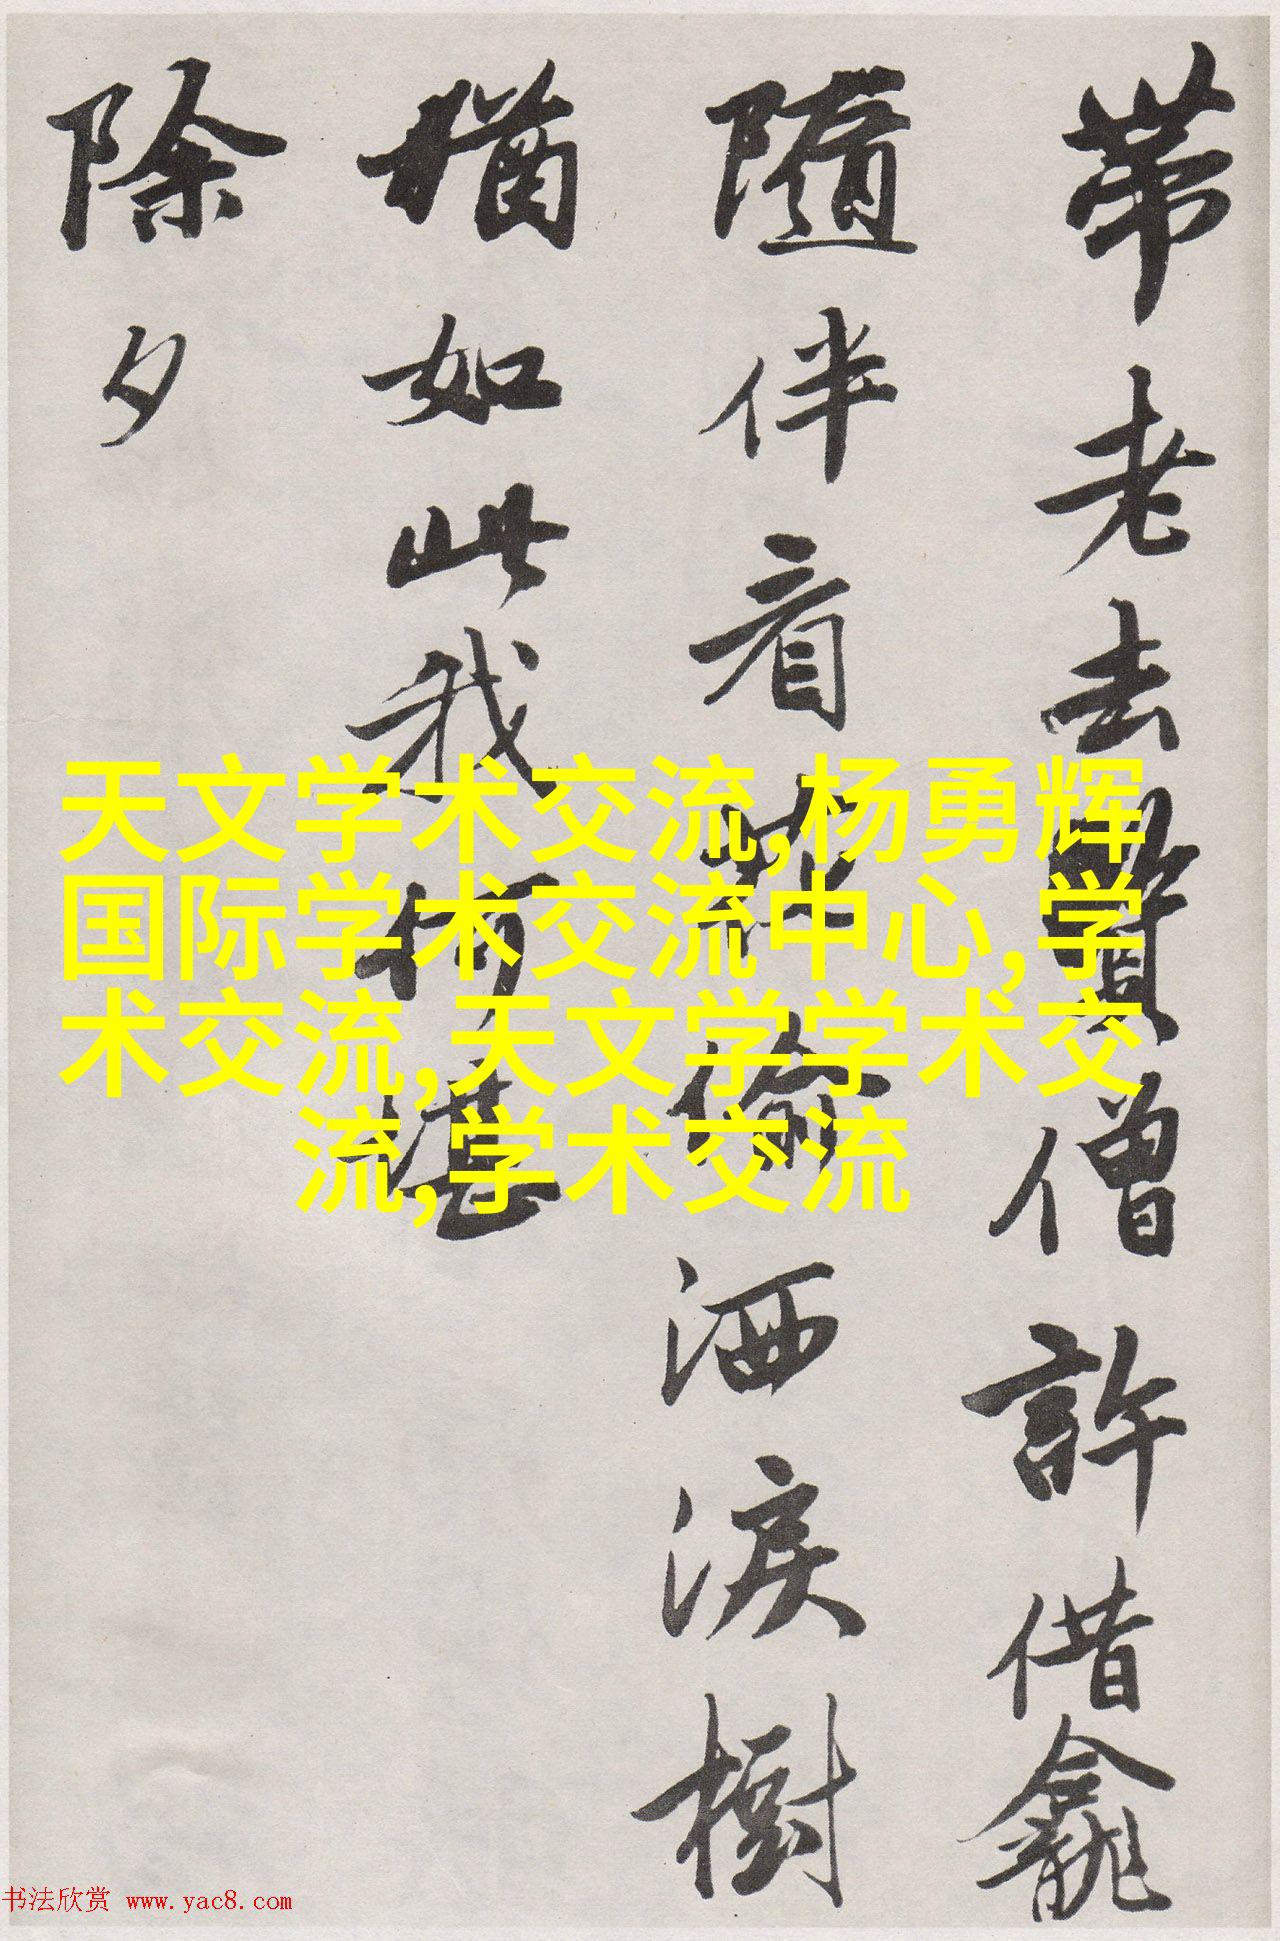 帶老去賢僧許借龕
隨伴看花偷洒淚樹
猶如此我何堪
除夕
天文学术交流,杨勇辉
国际学术交流中心,学
术交流,天文学学术交
流,学术交流
书法欣赏 www.yac8.com